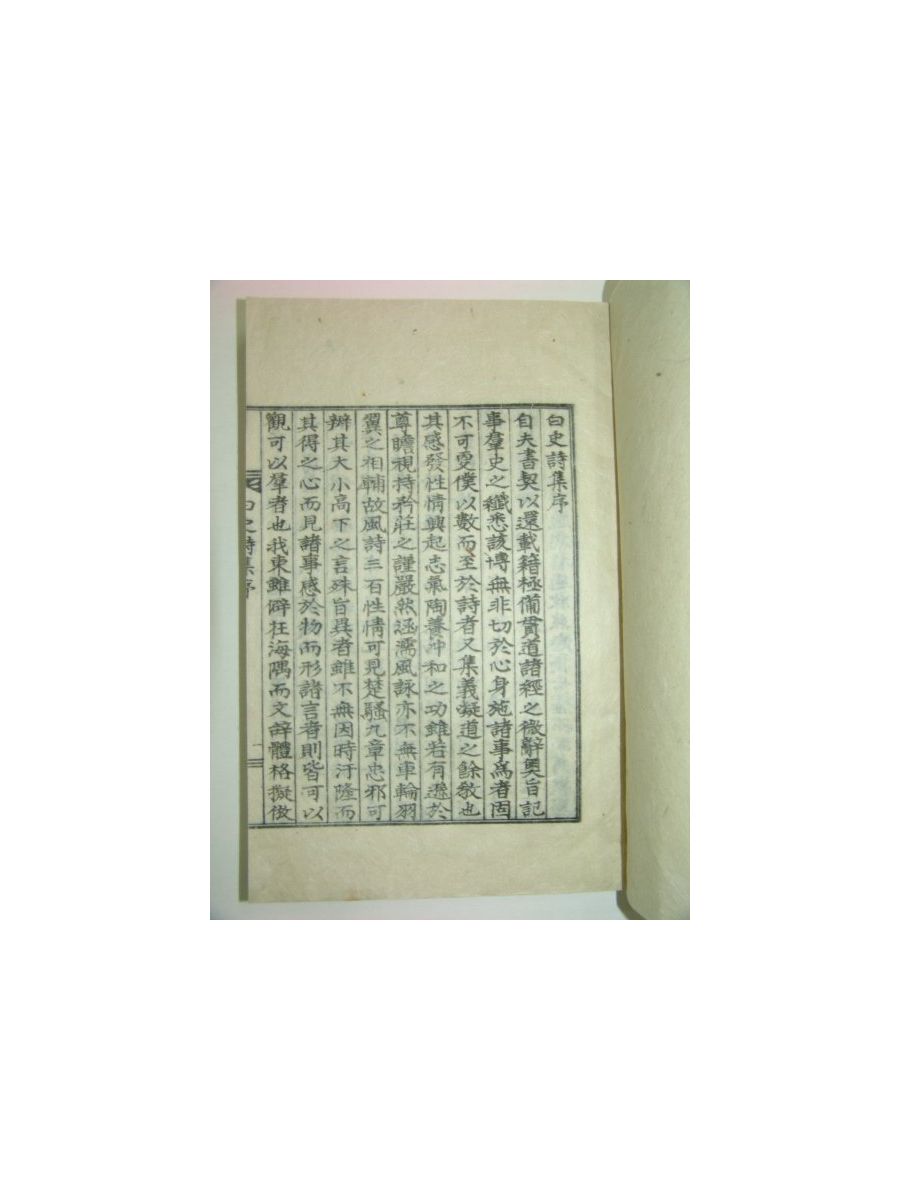 白史詩集序
自夫書契以還載籍極備貫道諸經之微辭奧旨記
事羣史之纖悉該博無非切於心身施諸事爲者固
不可更僕以數而至於詩者又集義凝道之餘教也
其感發性情興起志氣陶養冲和之功雖若有遜於
尊瞻視持矜莊之謹嚴然涵濡風詠亦不無車輪羽
翼之相輔故風詩三百性情可見楚騷九章忠邪可
辨其大小高下之言殊旨異者雖不無因時汙隆而
其得之心而見諸事感於物而形諸言者則皆可以
觀可以羣者也我東雖僻在海隅而文辭體格擬倣
史詩集序
一